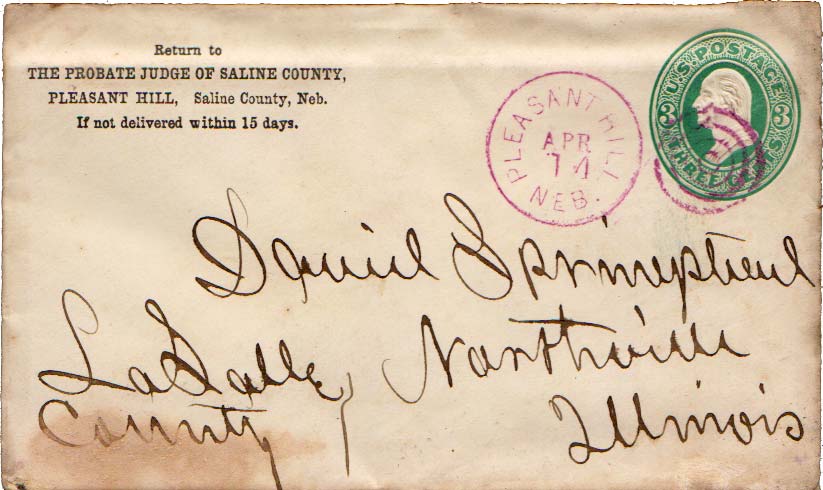 Return to
THE PROBATE JUDGE OF SALINE COUNTY,
PLEASANT HILL, Saline County, Neb.
If not delivered within 15 days.
PLEASANT HILL
APR
14
NEB.
U.S. POSTAGE
3 3
THREE CENTS
Daniel
Northville
LaSalle
County
Illinois